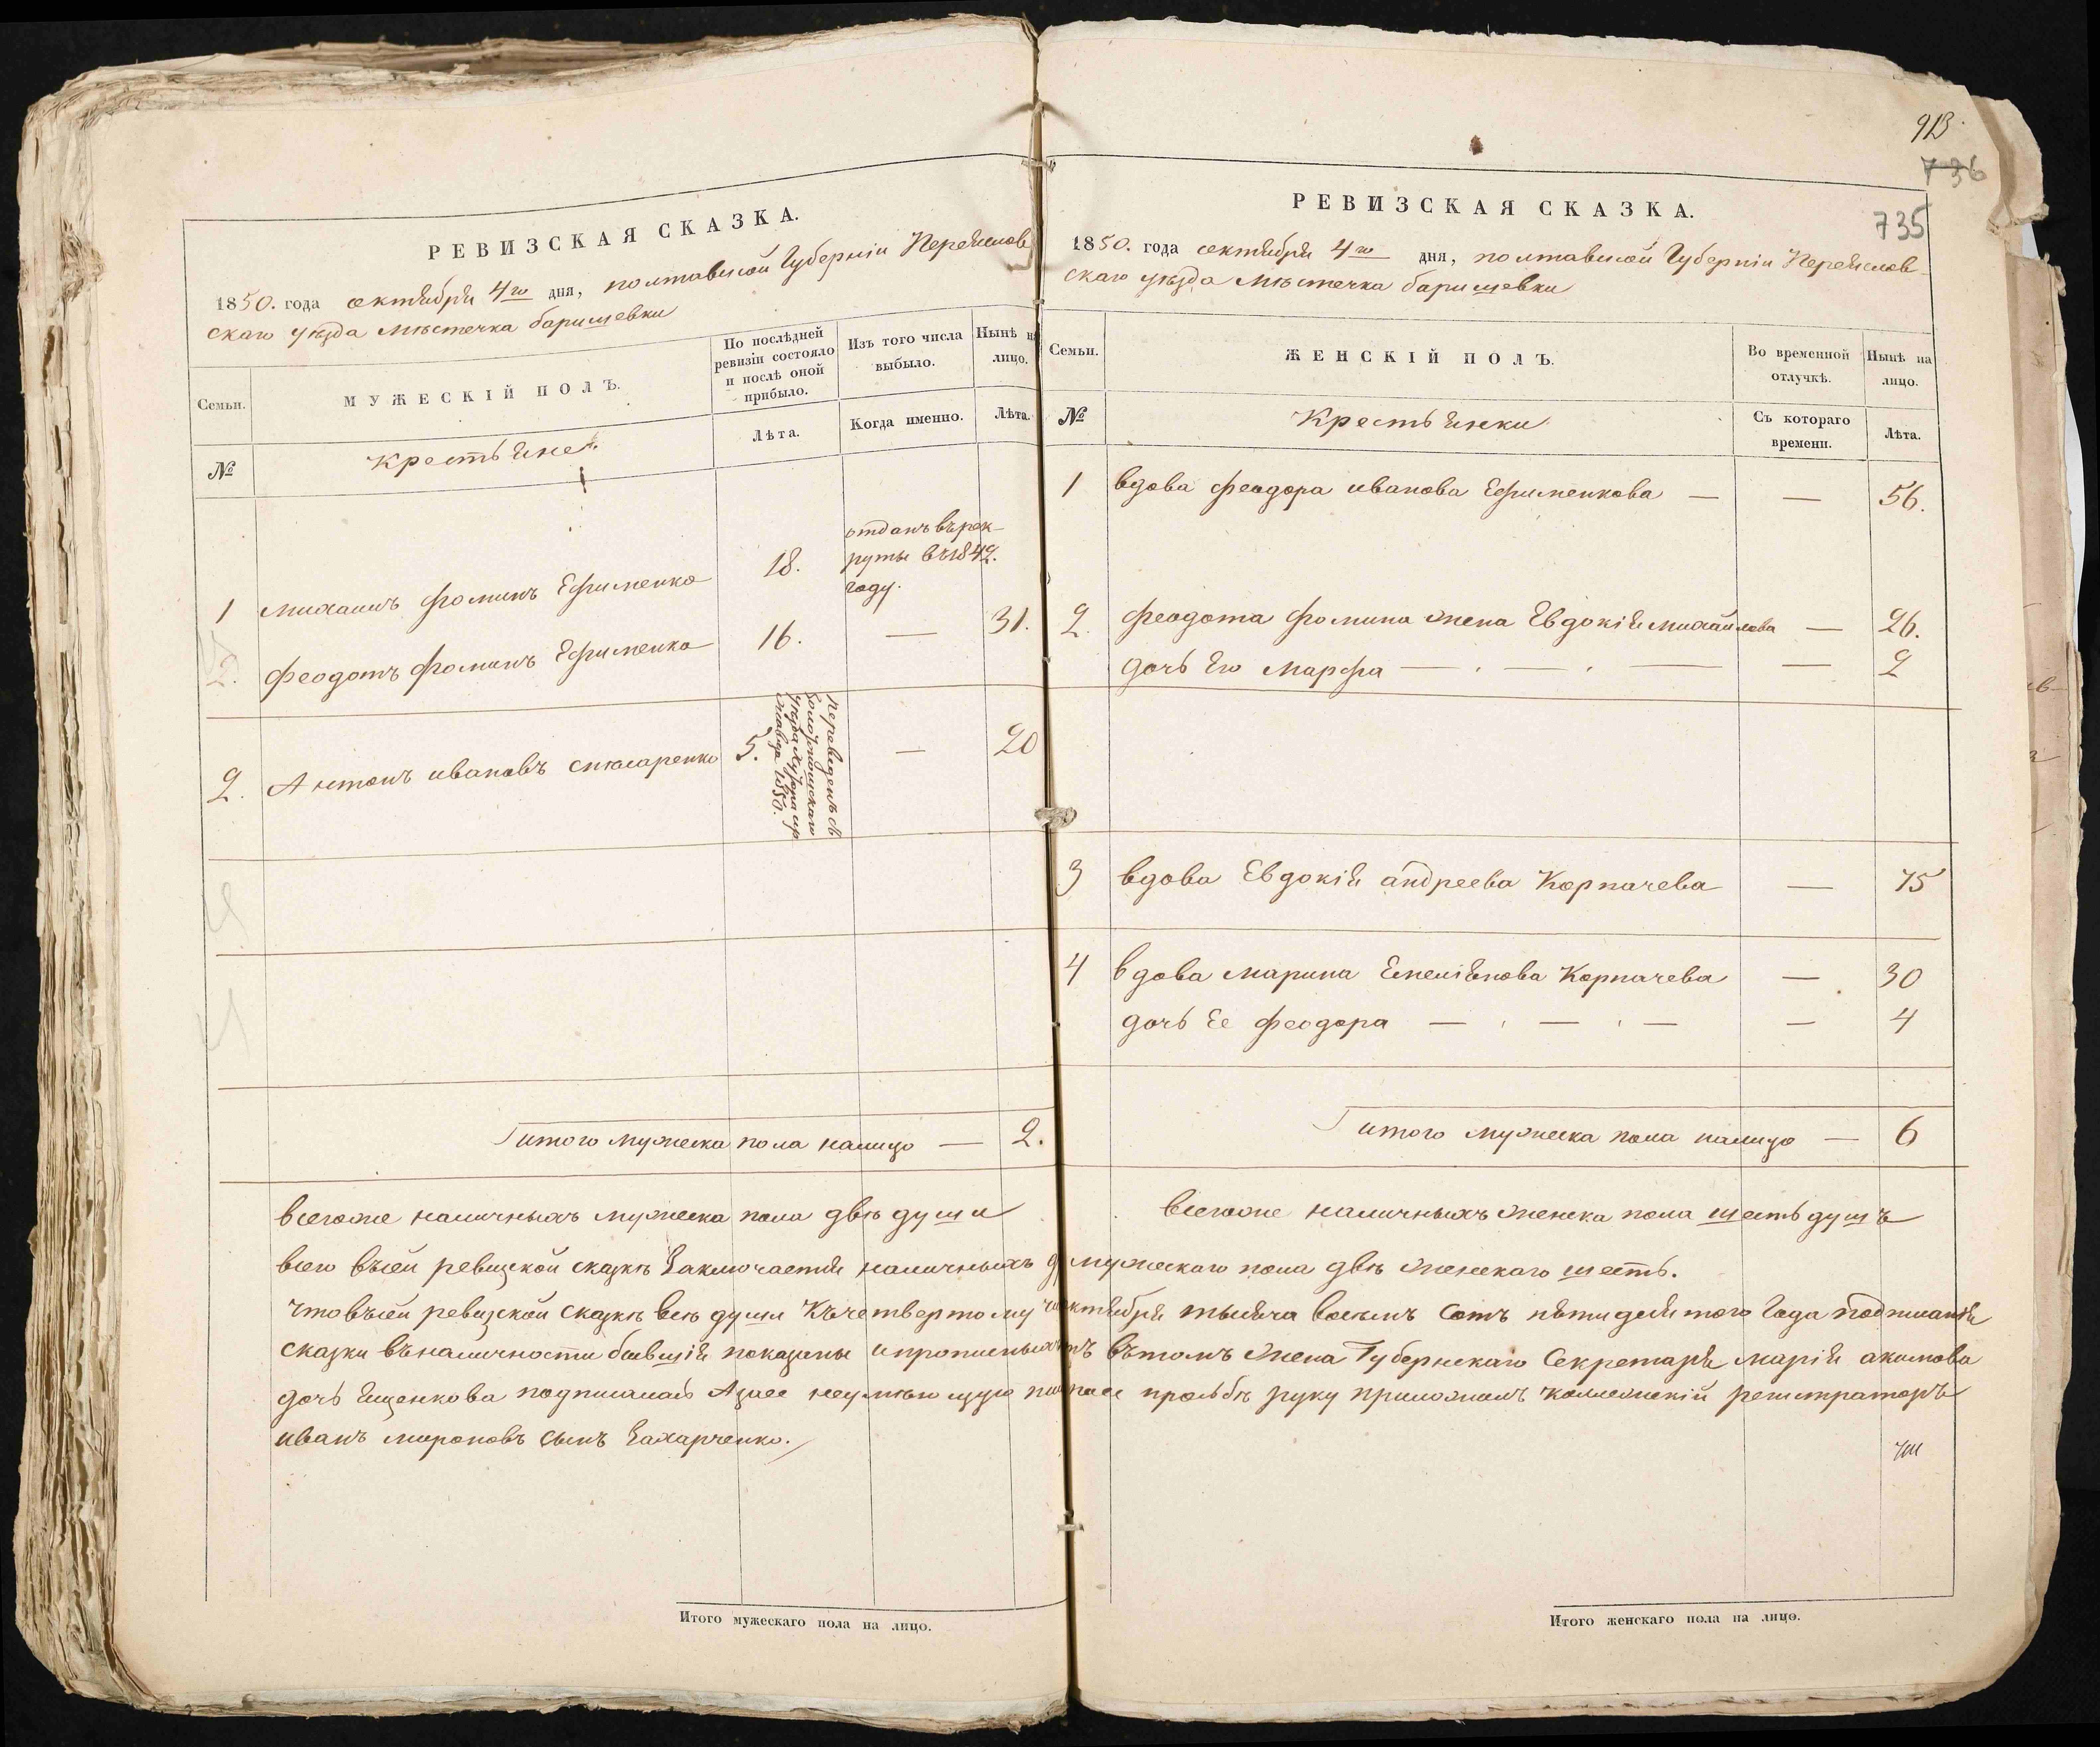 РЕВИЗСКАЯ СКАЗКА.
1850. года октября 4го дня, полтавской Губерніи Переяслов
скаго уѣзда мѣстечка баришевки
Семьи.
МУЖЕСКІЙ ПОЛЪ.
По послѣдней
ревизіи состояло
и послѣ оной
прибыло.
Изъ того числа
выбыло.
Нынѣ на
лицо.
№
Крестьяне.
Лѣта.
Когда именно.
Лѣта.
1 михаилъ фоминъ Ефименко 18.
отданъ въ рек-
руты въ 1849.
году.
2. феодотъ фоминъ Ефименко 16. — 31.
2. Антонъ ивановъ слюсаренко 5. — 20
Переведенъ съ
Золотоношскаго
уѣзда
1850.
итого мужеска пола налицо — 2.
всегоже наличныхъ мужеска пола двѣ души
913.
736
735
РЕВИЗСКАЯ СКАЗКА.
1850. года октября 4го дня, полтавской Губерніи Переяслов-
скаго уѣзда мѣстечка баришевки
Семьи.
ЖЕНСКІЙ ПОЛЪ.
Во временной
отлучкѣ.
Нынѣ на
лицо.
№
Крестьянки
Съ котораго
времени.
Лѣта.
1 вдова феодора иванова Ефименкова — — 56.
2. феодота фомина жена Евдокія михайлова — 26.
дочь Его марфа — . — . — — 2
3 вдова Евдокія андреева Корпачева — 75
4 вдова марина Емеліянова Корпачева — 30
дочь Ее феодора — . — . — — 4
итого мужеска пола налицо — 6
всегоже наличныхъ женска пола шесть душъ
всего въсей ревизской сказкѣ Заключается наличныхъ мужескаго пола двѣ женскаго шесть.
что въсей ревизской сказкѣ всѣ души Къчетвертому октября тысяча восемъ сотъ пятидесятого Года подписанія
сказки вналичности бывшія показаны вътомъ жена Губернскаго Секретаря марія акимова
дочь Ященкова подписалась Азаее неумѣющую просьбѣ руку приложилъ Колежскій регистраторъ
иванъ мироновъ сынъ Захарченко.
Итого мужескаго пола на лицо.
Итого женскаго пола на лицо.